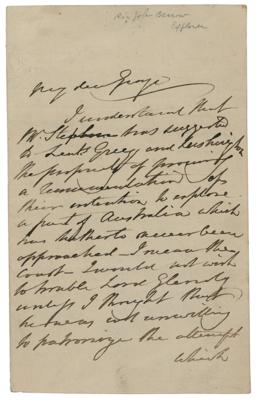 Sir John Barrow
Explorer
My dear George
I understand that
Mr. Stephen has suggested
to Lieuts Grey and Lushington
the propriety of procuring
a recommendation of
their intention to explore
a part of Australia which
has hitherto never been
approached — I mean the
coast — I would not wish
to trouble Lord Glenelg
unless I thought that
he was not unwilling
to patronize the attempt
which